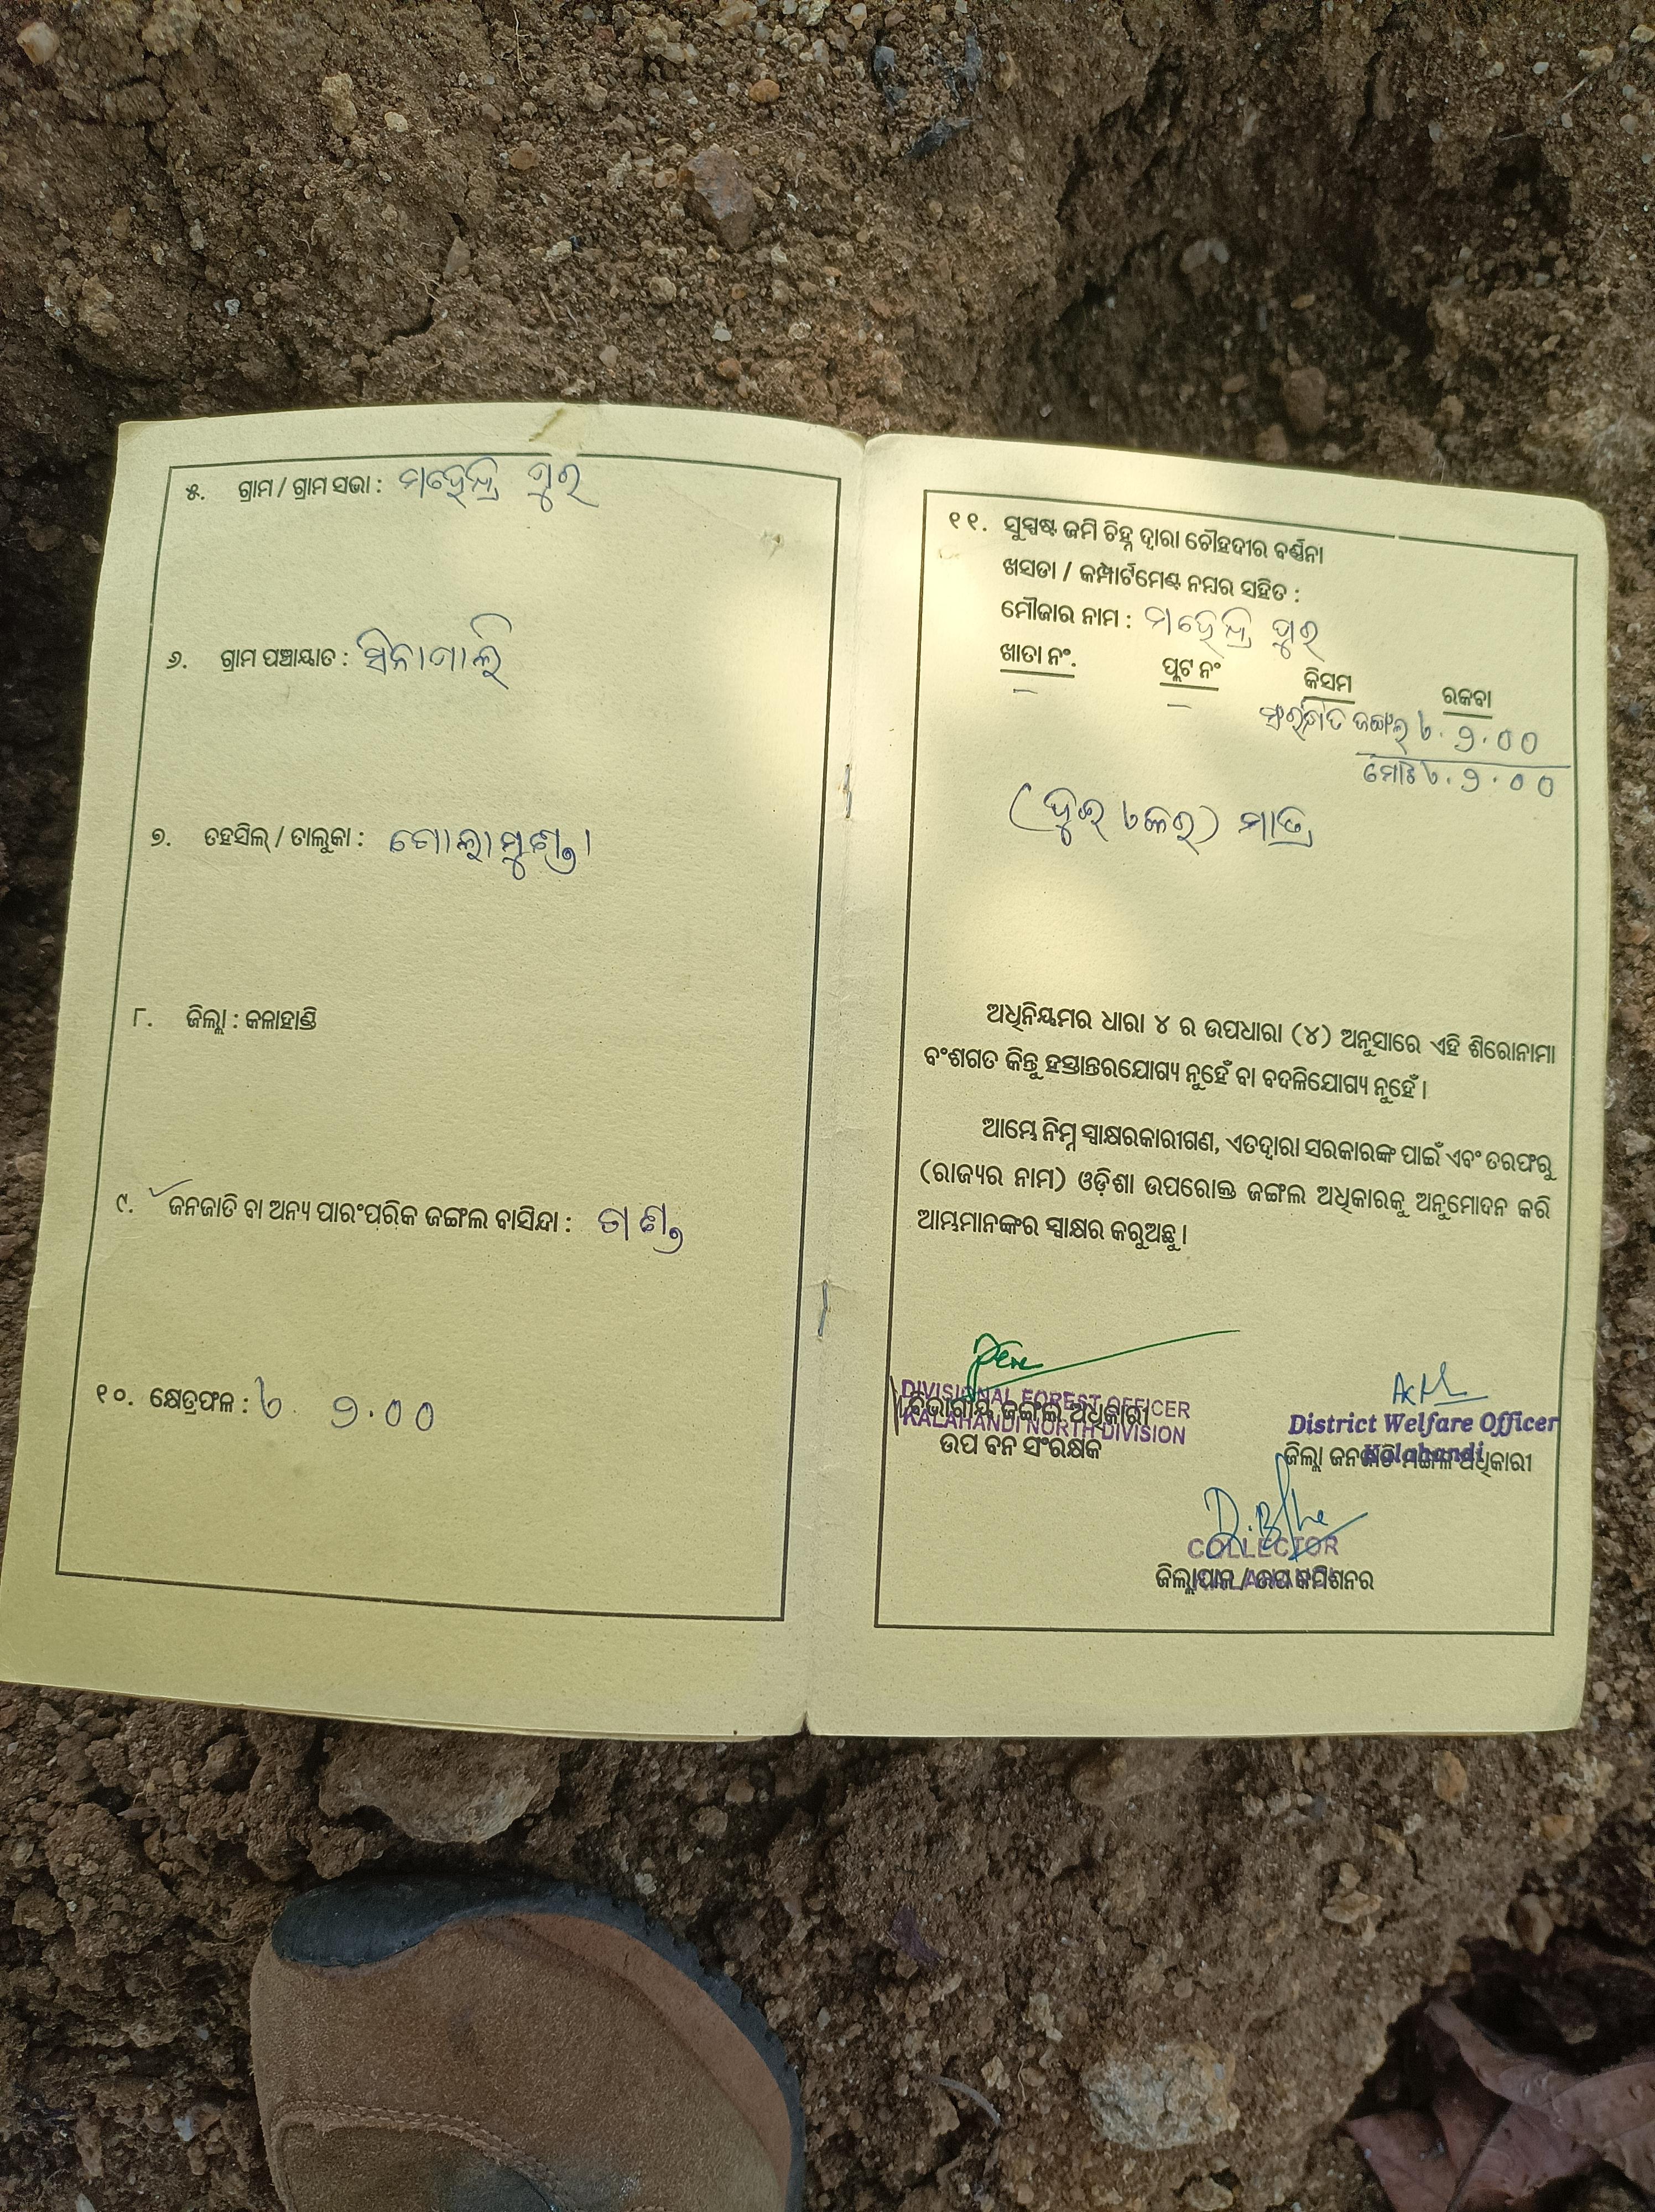 ୫. ଗ୍ରାମ / ଗ୍ରାମ ସଭା : ମହେନ୍ଦ୍ର ପୁର
୬. ଗ୍ରାମ ପଞ୍ଚାୟାତ : ସିନାପାଲି
୭. ତହସିଲ୍ / ତାଲୁକା : ଗୋଲାମୁଣ୍ଡା
୮. ଜିଲ୍ଲା : କଳାହାଣ୍ଡି
୯. ଜନଜାତି ବା ଅନ୍ୟ ପାରଂପରିକ ଜଙ୍ଗଲ ବାସିନ୍ଦା : ଗଣ୍ଡ
୧୦. କ୍ଷେତ୍ରଫଳ : ଏ. ୨.୦୦
୧୧. ସୁସ୍ପଷ୍ଟ ଜମି ଚିହ୍ନ ଦ୍ୱାରା ଚୌହଦୀର ବର୍ଣ୍ଣନା
ଖସଡା / କମ୍ପାର୍ଟମେଣ୍ଟ ନମ୍ବର ସହିତ :
ମୌଜାର ନାମ : ମହେନ୍ଦ୍ର ପୁର
ଖାତା ନଂ. ପ୍ଲଟ ନଂ କିସମ ରକବା
– – ସଂରକ୍ଷିତ ଜଙ୍ଗଲ ଏ. ୨.୦୦
ମୋଟ ଏ. ୨.୦୦
(ଦୁଇ ଏକର) ମାତ୍ର
ଅଧିନିୟମର ଧାରା ୪ ର ଉପଧାରା (୪) ଅନୁସାରେ ଏହି ଶିରୋନାମା
ବଂଶଗତ କିନ୍ତୁ ହସ୍ତାନ୍ତରଯୋଗ୍ୟ ନୁହେଁ ବା ବଦଳିଯୋଗ୍ୟ ନୁହେଁ ।
ଆମ୍ଭେ ନିମ୍ନ ସ୍ୱାକ୍ଷରକାରୀଗଣ, ଏତଦ୍ୱାରା ସରକାରଙ୍କ ପାଇଁ ଏବଂ ତରଫରୁ
(ରାଜ୍ୟର ନାମ) ଓଡ଼ିଶା ଉପରୋକ୍ତ ଜଙ୍ଗଲ ଅଧିକାରକୁ ଅନୁମୋଦନ କରି
ଆମ୍ଭମାନଙ୍କର ସ୍ୱାକ୍ଷର କରୁଅଛୁ ।
DIVISIONAL FOREST OFFICER
ବିଭାଗୀୟ ଜଙ୍ଗଲ ଅଧିକାରୀ
KALAHANDI NORTH DIVISION
ଉପ ବନ ସଂରକ୍ଷକ
District Welfare Officer
Kalahandi
ଜିଲ୍ଲା ଜନଜାତି ମଙ୍ଗଳ ଅଧିକାରୀ
COLLECTOR
ଜିଲ୍ଲାପାଳ / ଉପ କମିଶନର